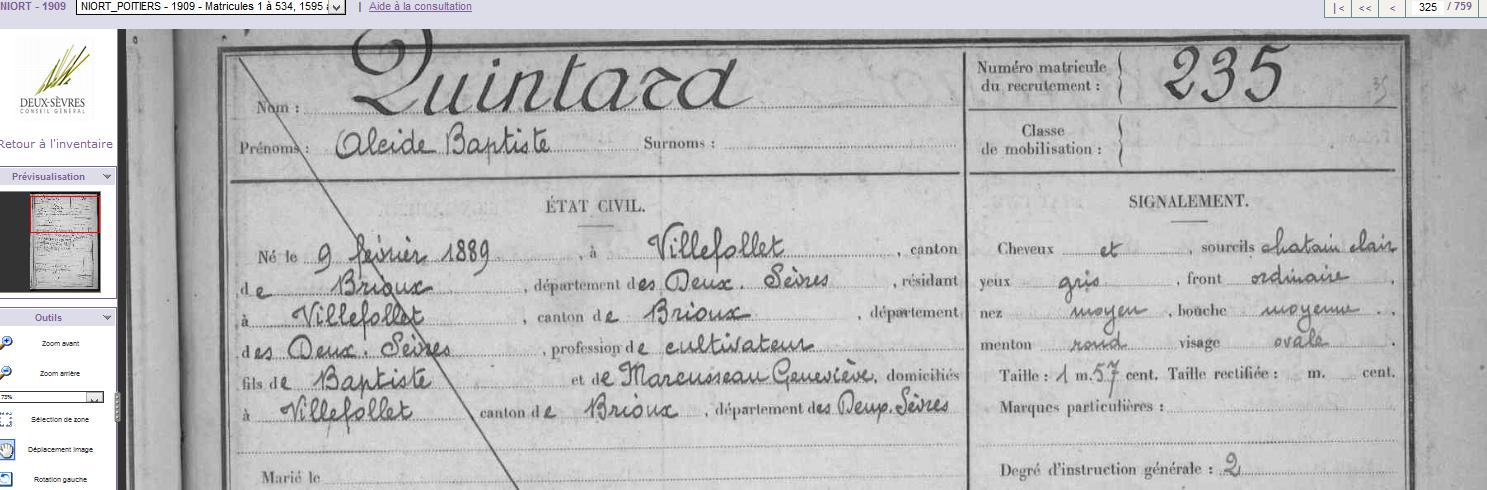 NIORT - 1909
NIORT_POITIERS - 1909 - Matricules 1 à 534, 1595
| Aide à la consultation
|< << < 325 / 759
DEUX-SÈVRES
CONSEIL GÉNÉRAL
Retour à l'inventaire
Prévisualisation
Outils
Zoom avant
Zoom arrière
73%
Sélection de zone
Déplacement image
Rotation gauche
Nom : Quintard
Prénoms : Alcide Baptiste Surnoms :
Numéro matricule du recrutement : 235
Classe de mobilisation :
ÉTAT CIVIL.
Né le 9 février 1889, à Villefollet, canton
de Brioux, département des Deux. Sèvres, résidant
à Villefollet, canton de Brioux, département
des Deux. Sèvres, profession de cultivateur
fils de Baptiste et de Marcusseau Geneviève, domiciliés
à Villefollet canton de Brioux, département des Deux. Sèvres
Marié le
SIGNALEMENT.
Cheveux et, sourcils chatain clair
yeux gris, front ordinaire,
nez moyen, bouche moyenne.,
menton rond visage ovale.
Taille : 1 m. 57 cent. Taille rectifiée : m. cent.
Marques particulières :
Degré d'instruction générale : 2